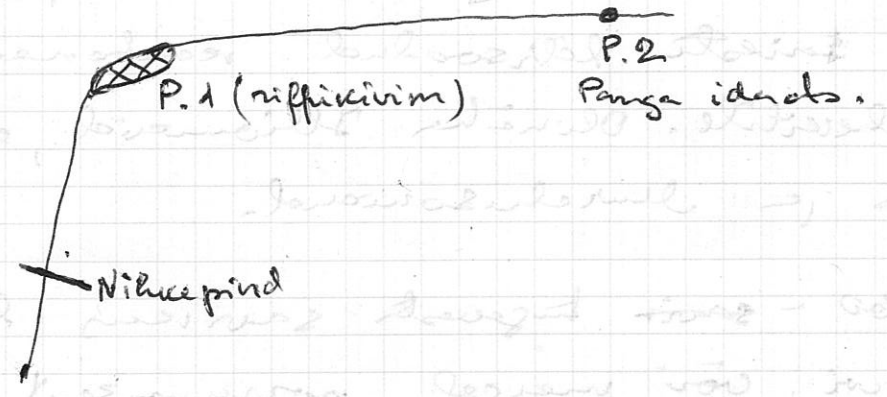 P.2
P.1 (riffikivim) Panga idaots.
Nihkepind